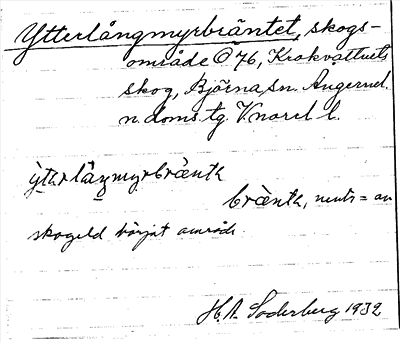 Ytterlångmyrbräntet, skogs-
område Ö 76, Krokvattnets
skog, Björna sn. Ångerml.
n. doms. tg. Vnorrl l.
brä̀ntɛ, neutr = av
skogseld härjat område.
H. A. Söderberg 1932